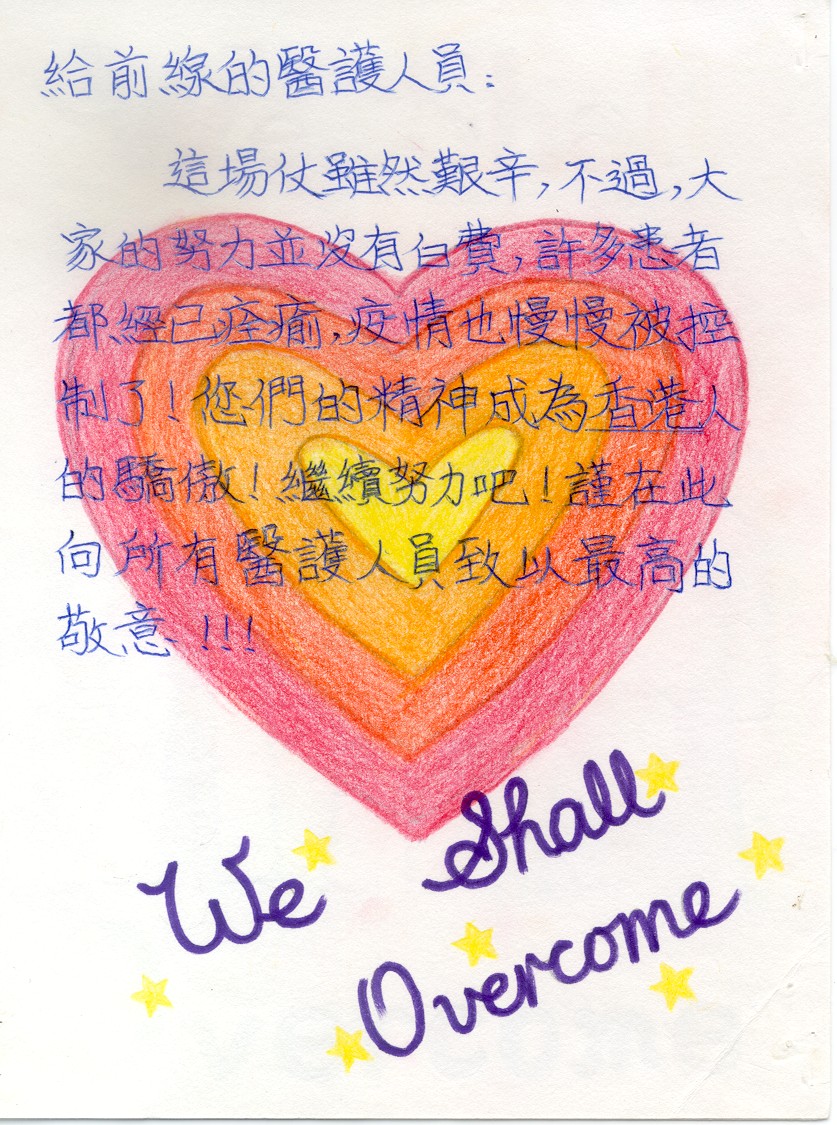 給前線的醫護人員：
這場仗雖然艱辛，不過，大
家的努力並沒有白費，許多患者
都經已痊癒，疫情也慢慢被控
制了！您們的精神成為香港人
的驕傲！繼續努力吧！謹在此
向所有醫護人員致以最高的
敬意！！！
We Shall
Overcome